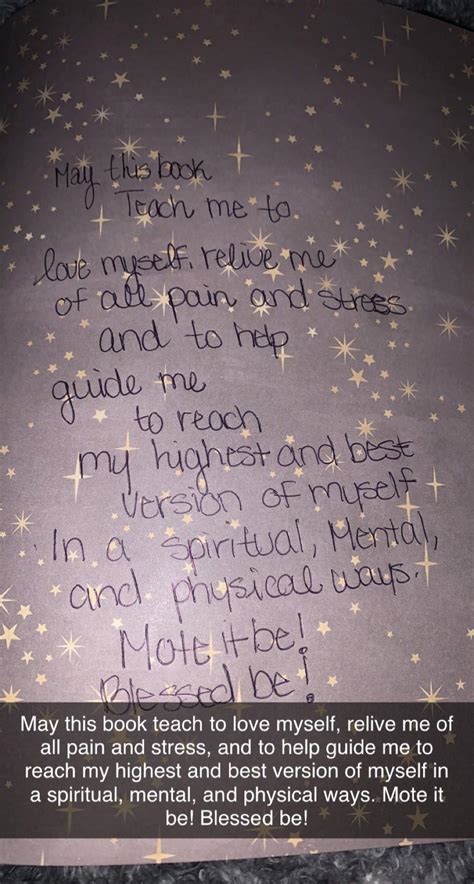 May this book
Teach me to.
love myself, relive me
of all pain and stress
and to help
guide me
to reach
my highest and best
version of myself
In a spiritual, Mental,
and physical ways.
Mote it be!
Blessed be!
May this book teach to love myself, relive me of
all pain and stress, and to help guide me to
reach my highest and best version of myself in
a spiritual, mental, and physical ways. Mote it
be! Blessed be!